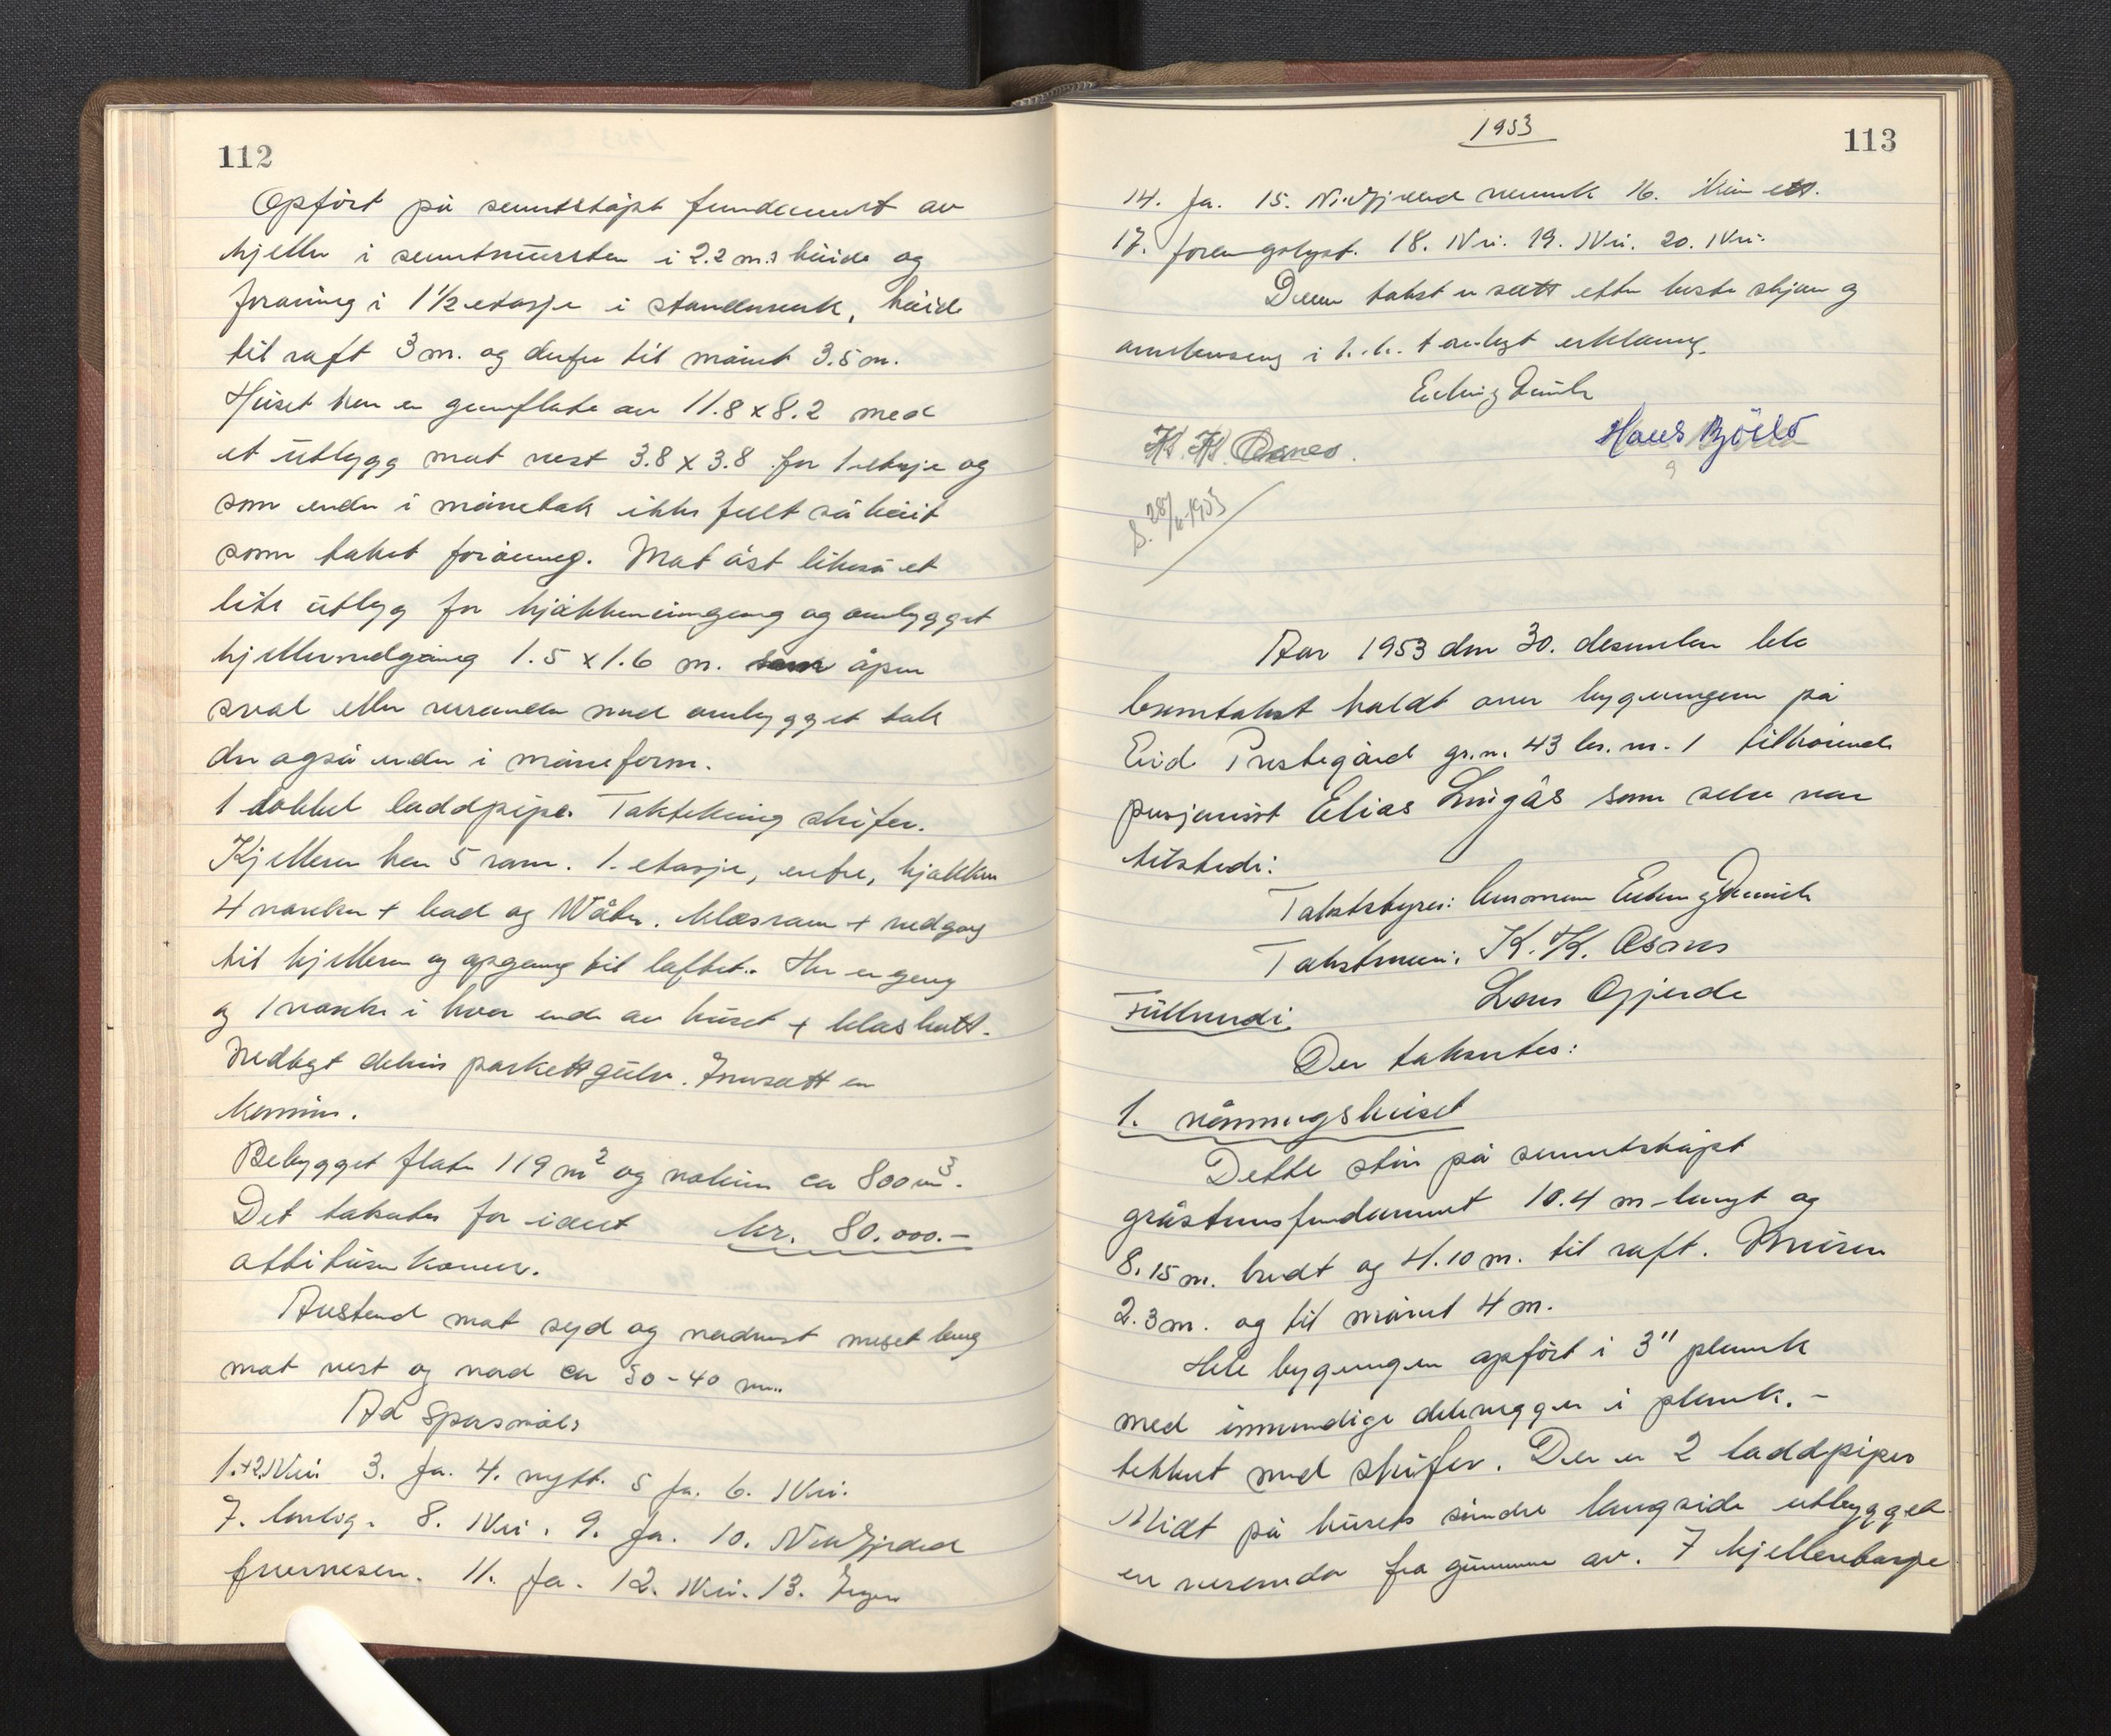 112
Opført på sementstøpt fundament av
kjeller i sementmursten i 2.2 m.s høide og
forøvrig i 1½ etasje i standverk, høide
til raft 3 m. og derfra til mønet 3.5 m.
Huset har en grunflate av 11.8 x 8.2 med
et utbygg mot vest 3.8 x 3.8 for 1 etasje og
som ender i mønetak ikke fullt så høit
som taket forøvrig. Mot øst likeså et
lite utbygg for kjøkkeninngang og ombygget
kjellernedgang 1.5 x 1.6 m. åpen
sval eller veranda med ombygget tak
der også ender i møneform.
1 dobbel loddpipe. Taktekking skifer.
Kjelleren har 5 rom. 1. etasje, entre, kjøkken
4 værelser + bad og Wåter. klæsrom + nedgang
til kjelleren og opgang til loftet. Her er gang
og 1 værelse i hver ende av huset + klæskott.
Nedlagt delvis parkettgulv. Innsatt en
kamin.
Bebygget flate 119 m² og volum ca 800 m³.
Det takseres for ident kr. 80.000.-
åttitusen kroner.
Avstand mot syd og nordvest meget lang
mot vest og nord ca 30-40 m.
Ad Spørsmål:
1.+2. Nei 3. Ja. 4. nytt. 5 Ja. 6. Nei.
7. 8. Nei. 9. Ja. 10. Nei
11. Ja. 12. Nei. 13. Ingen
1953
113
14. Ja. 15. 16.
17. 18. Nei. 19. Nei. 20. Nei.
Denne takst er satt etter beste skjøn og
i h. h. t avlagt erklæring.
K. K. Øsnes. Hans
S. 28/11 1953
Aar 1953 den 30. desember ble
branntakst holdt over bygningen på
Eid Prestegård gr.n. 43 br. nr. 1 tilhørende
Elias som selv var
tilstede:
Takstbyrer: lensmann
Takstmenn: K. K. Øsnes
Lars Gjerde
Fullverdi.
Der takseres:
1. våningshuset
Dette står på sementstøpt
gråstensfundament 10.4 m langt og
8.15 m. bredt og 4.10 m. til raft. Muren
2.3 m. og til mønet 4 m.
Hele bygningen opført i 3" plank
med innvendige delevegger i plank. -
tekket med skifer. Der er 2 loddpiper
Midt på husets søndre langside utbygget
en veranda fra grunnen av. I kjelleretasje